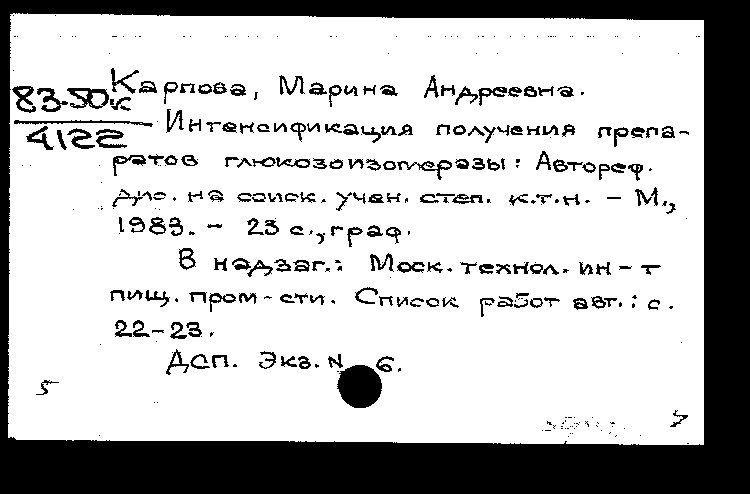 Карпова, Марина Андреевна.
83-50к
4122
Интенсификация получения препа-
ратов глюкозоизомеразы: Автореф.
дис. на соиск. учен. степ. к.т.н. - М.,
1983. - 23 с., граф.
В надзаг.: Моск. технол. ин-т
пищ. пром-сти. Список работ авт.: с.
22-23.
ДСП. Экз. N 6.
5
7